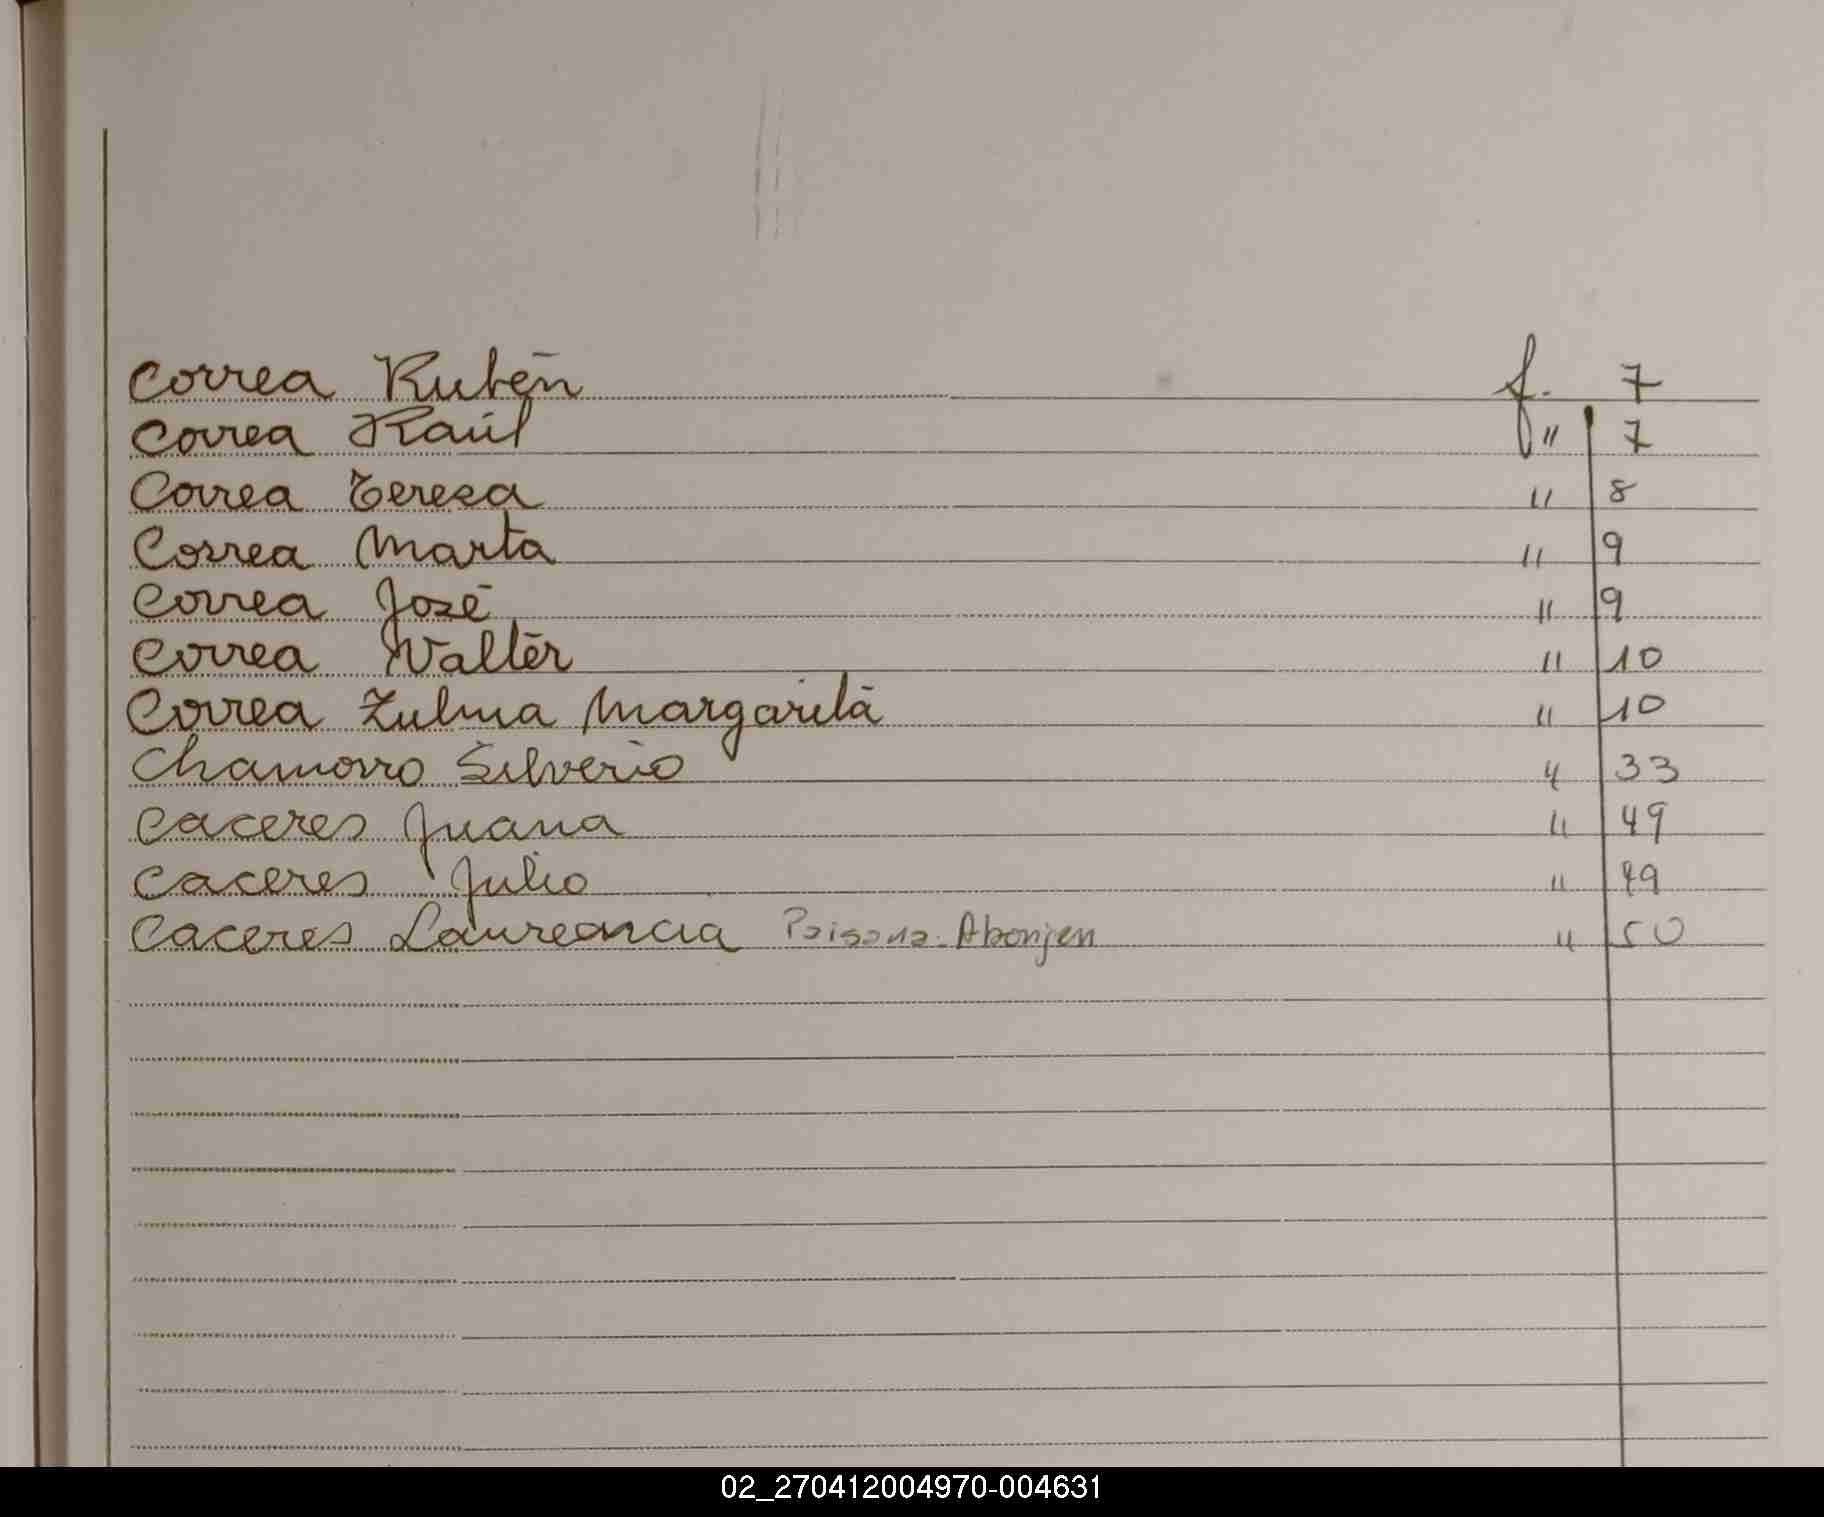 Correa Rubén f. 7
Correa Raúl " 7
Correa Teresa " 8
Correa Marta " 9
Correa José " 9
Correa Walter " 10
Correa Zulma Margarita " 10
Chamorro Silverio " 33
Caceres Juana " 49
Caceres Julio " 49
Caceres Laureancia " 50
02_270412004970-004631